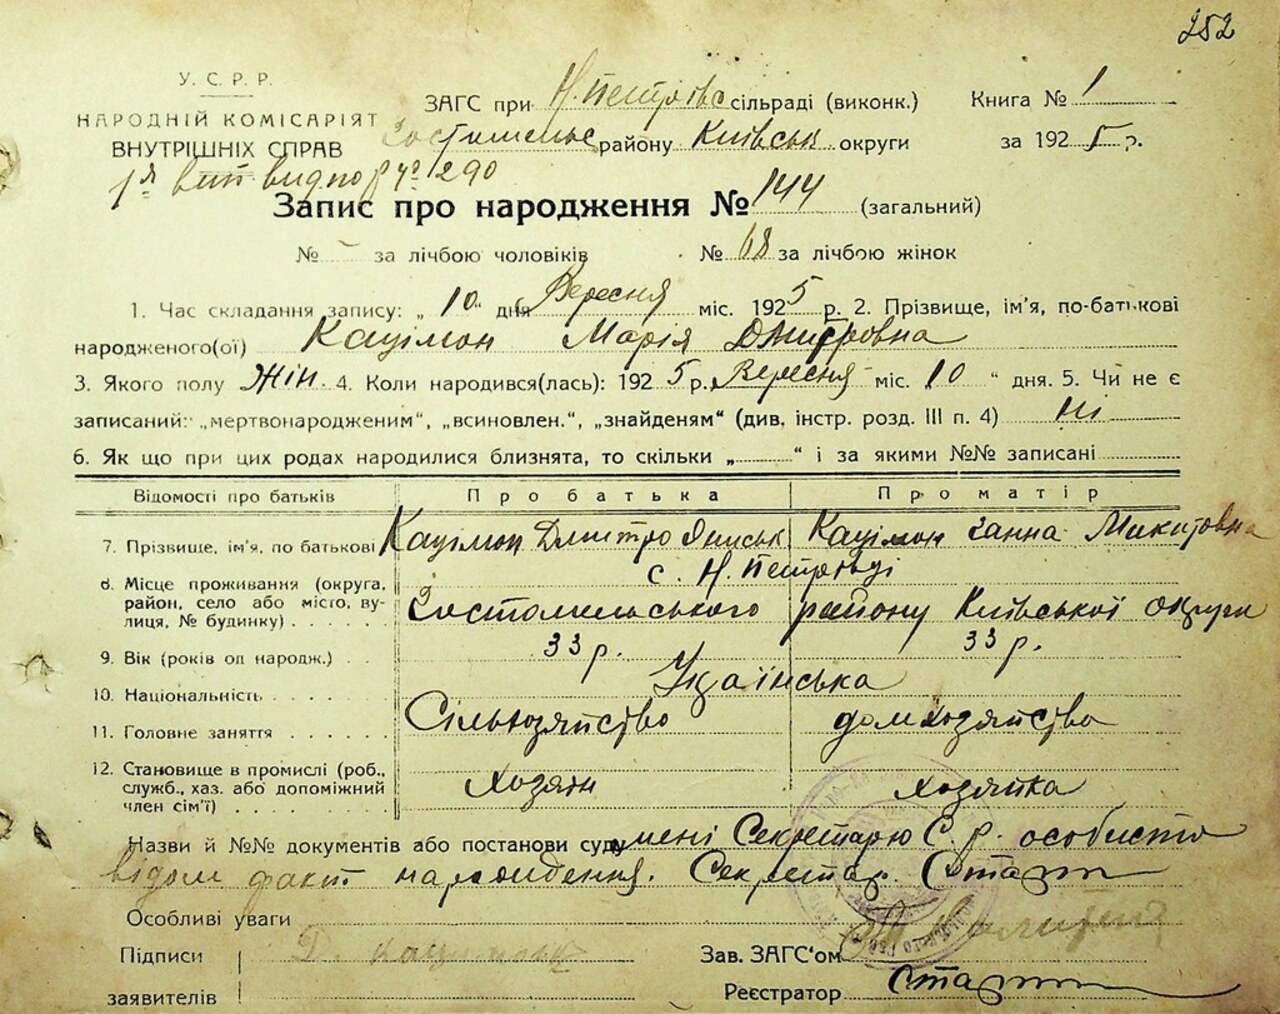 252
У. С. Р. Р.
НАРОДНІЙ КОМІСАРІЯТ
ВНУТРІШНІХ СПРАВ
ЗАГС при Н. Петрівс сільраді (виконк.)
Книга № 1
Гостомельс району Київськ округи
за 1925 р.
1я вип видпо р 290
Запис про народження № 144 (загальний)
№ за лічбою чоловіків № 68 за лічбою жінок
1. Час складання запису: „10“ дня Вересня міс. 1925 р. 2. Прізвище, ім'я, по-батькові
народженого(ої) Кацімон Марія Дмитровна
3. Якого полу Жін. 4. Коли народився(лась): 1925 р. Вересня міс. 10 “ дня. 5. Чи не є
записаний: „мертвонародженим“, „всиновлен.“, „знайденям“ (див. інстр. розд. III п. 4) Ні
6. Як що при цих родах народилися близнята, то скільки „ “ і за якими №№ записані
Відомості про батьків
Про батька
Про матір
7. Прізвище, ім'я, по батькові
Кацімон Дмитро Якиськ
Кацімон Ганна Микитовна
8. Місце проживання (округа,
район, село або місто, ву-
лиця, № будинку)
с. Н. Петрівці
Гостомельського району Київської округи
9. Вік (років од народж.)
33 р.
33 р.
10. Національність
Українська
11. Головне заняття
Сільхозяйство
домхозяйство
12. Становище в промислі (роб.,
служб., хаз. або допоміжний
член сім'ї)
Хозяін
хозяйка
Назви й №№ документів або постанови суду мені Секретарю С. р. особисто
відом факт народидення. Секретар
Особливі уваги
Підписи
заявителів
Д. Кацімон
Зав. ЗАГС'ом
Реєстратор